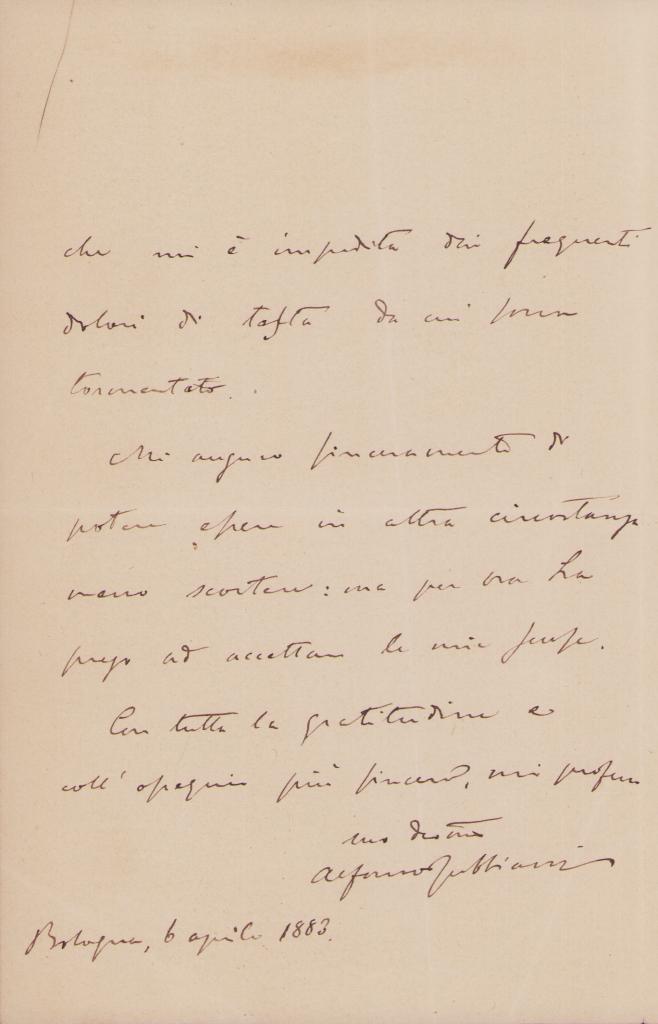 che mi è impedita dai frequenti
dolori di testa da cui sono
tormentato.
Mi auguro sinceramente di
potere essere in altra circostanza
meno scortese: ma per ora La
prego ad accettare le mie scuse.
Con tutta la gratitudine e
coll' ossequio più sincero, mi professo
suo devmo
Alfonso Rubbiani
Bologna, 6 aprile 1883.